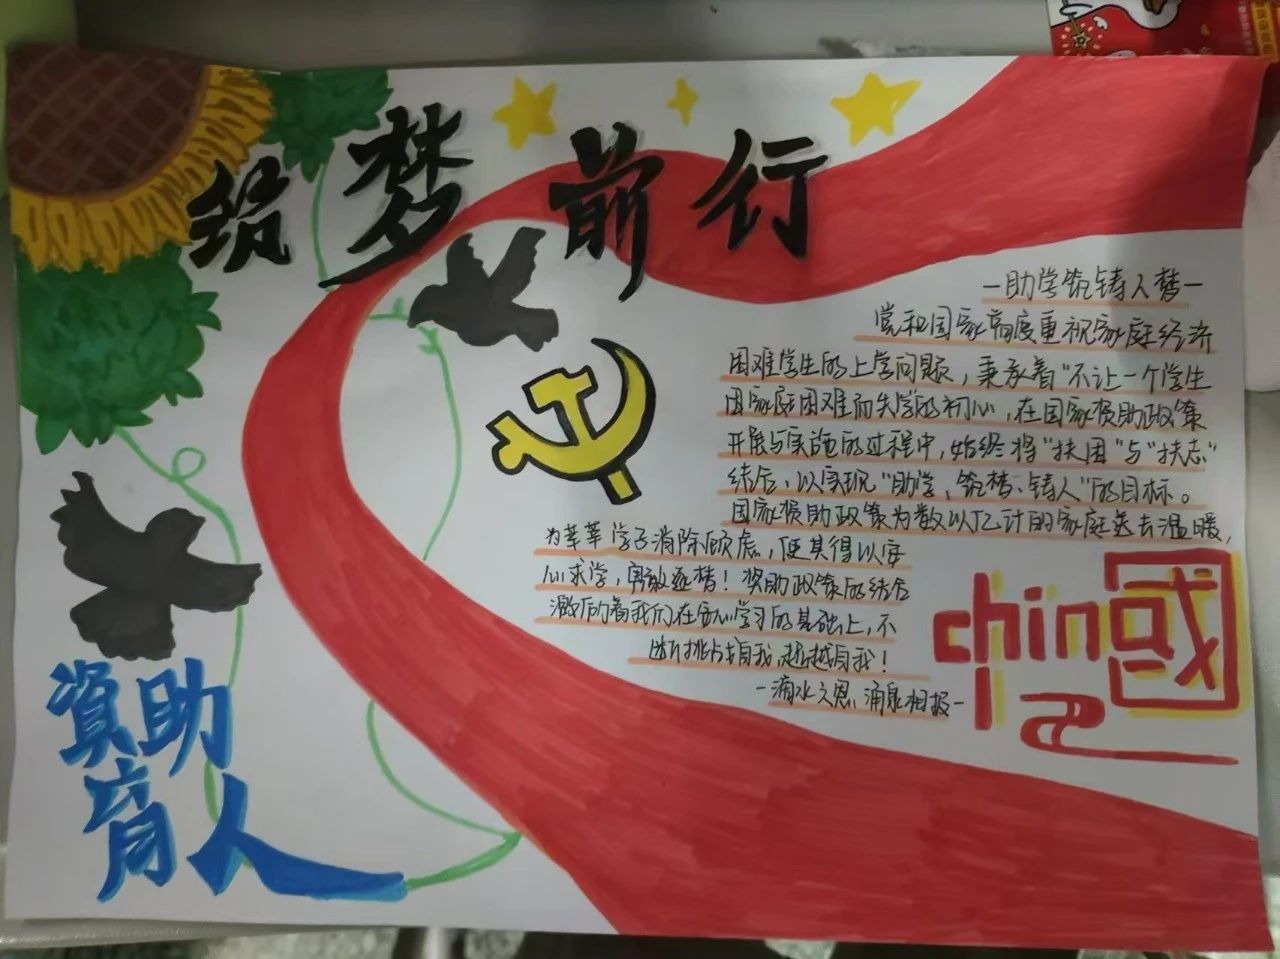 筑梦前行
—助学筑铸人梦—
党和国家高度重视家庭经济
困难学生的上学问题，秉承着“不让一个学生
因家庭困难而失学的初心，在国家资助政策
开展与实施的过程中，始终将“扶困”与“扶志”
结合，以实现“助学、筑梦、铸人”的目标。
国家资助政策为数以亿计的家庭送去温暖，
为莘莘学子消除顾虑，使其得以安
心求学，勇敢逐梦！奖助政策的结合
激励着我们在安心学习的基础上，不
断挑战自我，超越自我！
—滴水之恩 涌泉相报—
china
國
資助
育人